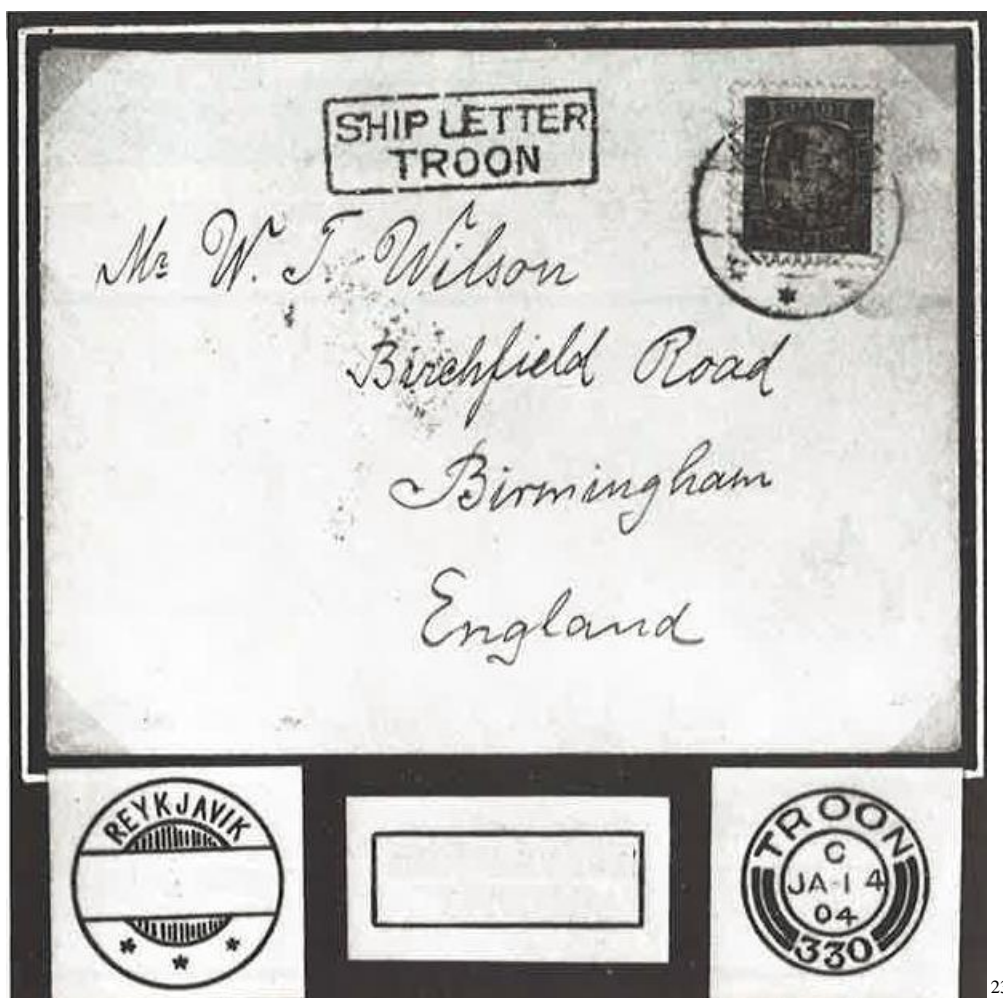 SHIP LETTER
TROON
Mr W. T. Wilson
Birchfield Road
Birmingham
England
REYKJAVIK
TROON
C
JA-1 4
04
330